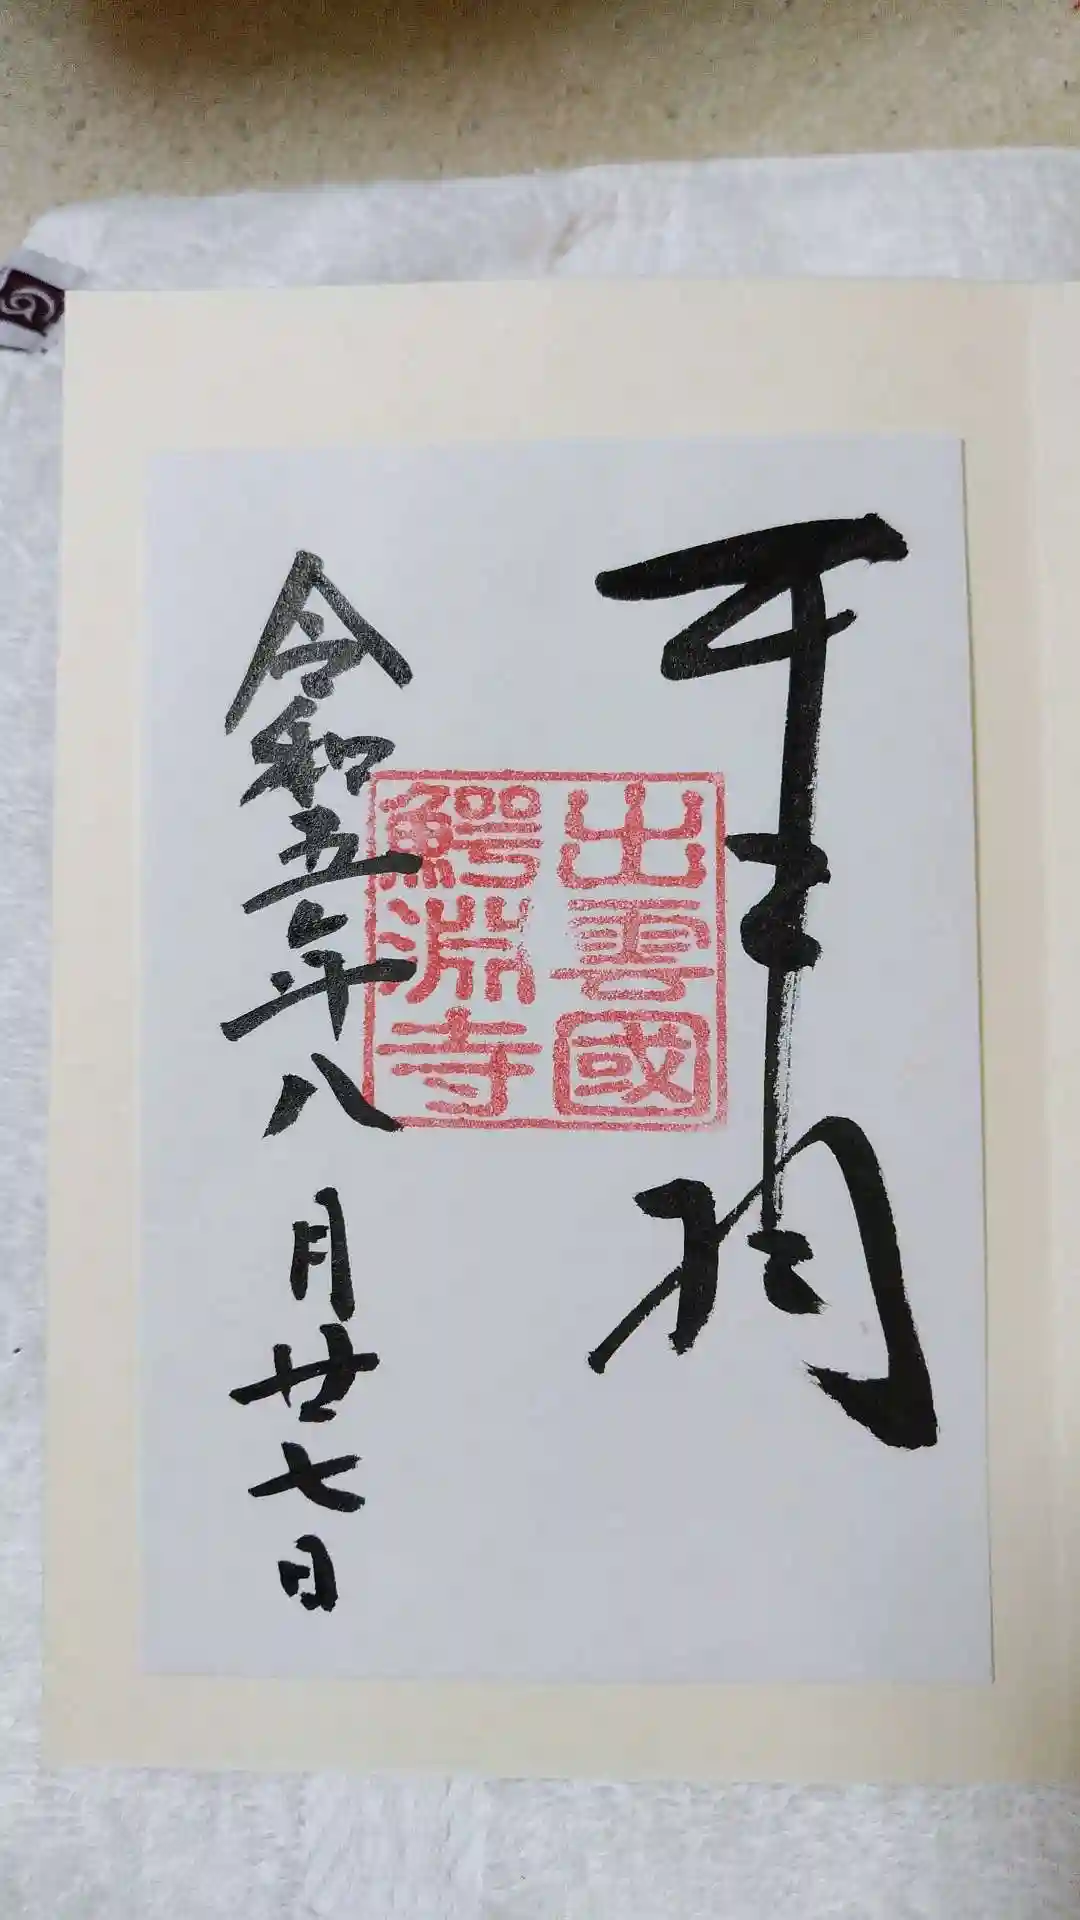 出雲國
鰐淵寺
令和五年八月廿七日